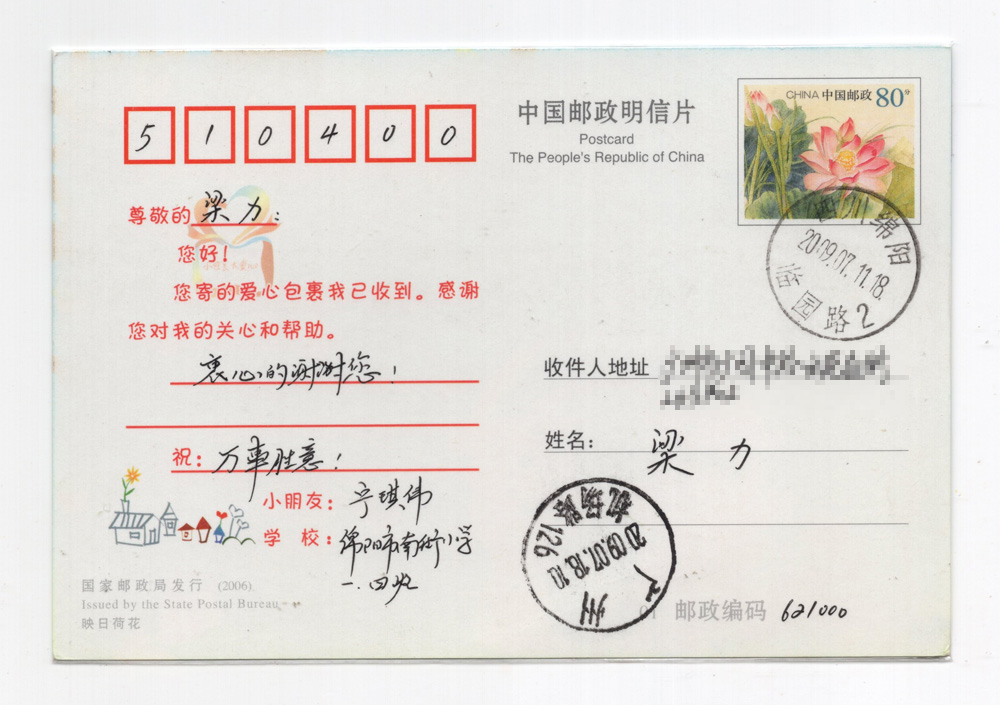 510400
中国邮政明信片
Postcard
The People's Republic of China
CHINA 中国邮政 80分
四川绵阳
2009.07.11.18
园路2
尊敬的梁力：
您好！
您寄的爱心包裹我已收到。感谢
您对我的关心和帮助。
衷心的谢谢您！
祝：万事胜意！
小朋友：宁琪伟
学 校：绵阳市南街小学
一.四班
收件人地址
姓名：梁力
广州
2009.07.18.10
机场路126
国家邮政局发行 (2006)
Issued by the State Postal Bureau
映日荷花
邮政编码 621000